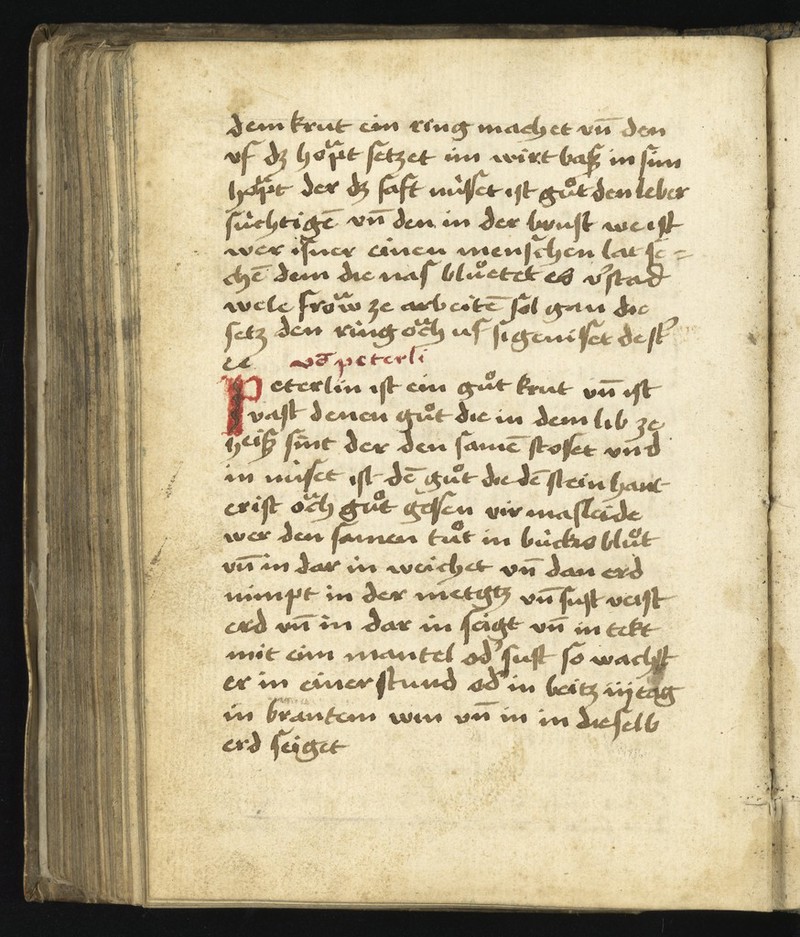 dem krut ein ring machet vn̄ den
vf dz hoͮpt setzet im wirt basz in sim
hoͮpt der dz saft nússet ist guͦt den leber
súchtigē vn̄ den in der brust we ist
wer isner einen menschen lat se=
chē dem die nas bluͦetet es v͛stad
wele froͮw ze arbeitē sol gan die
setz den ring oͮch uf si geniset dest͛
ee vō peterli
Peterlin ist ein guͦt krut vn̄ ist
vast denen guͦt die in dem lib ze
heisz sint der den samē stosset vnd
in nússet ist dē guͦt die dē stein hant
er ist oͮch guͦt gessen vir masleide
wer den samen tuͦt in bucks bluͦt
vn̄ in dar in weichet vn̄ dan erd
nimpt in der metzg vn̄ sust veist
erd vn̄ in dar in seigt vn̄ in tekt
mit eim mantel od͛ sust so wachst
er in einer stund od͛ in beitz iij tag
in brantem win vn̄ in in die selb
erd seiget